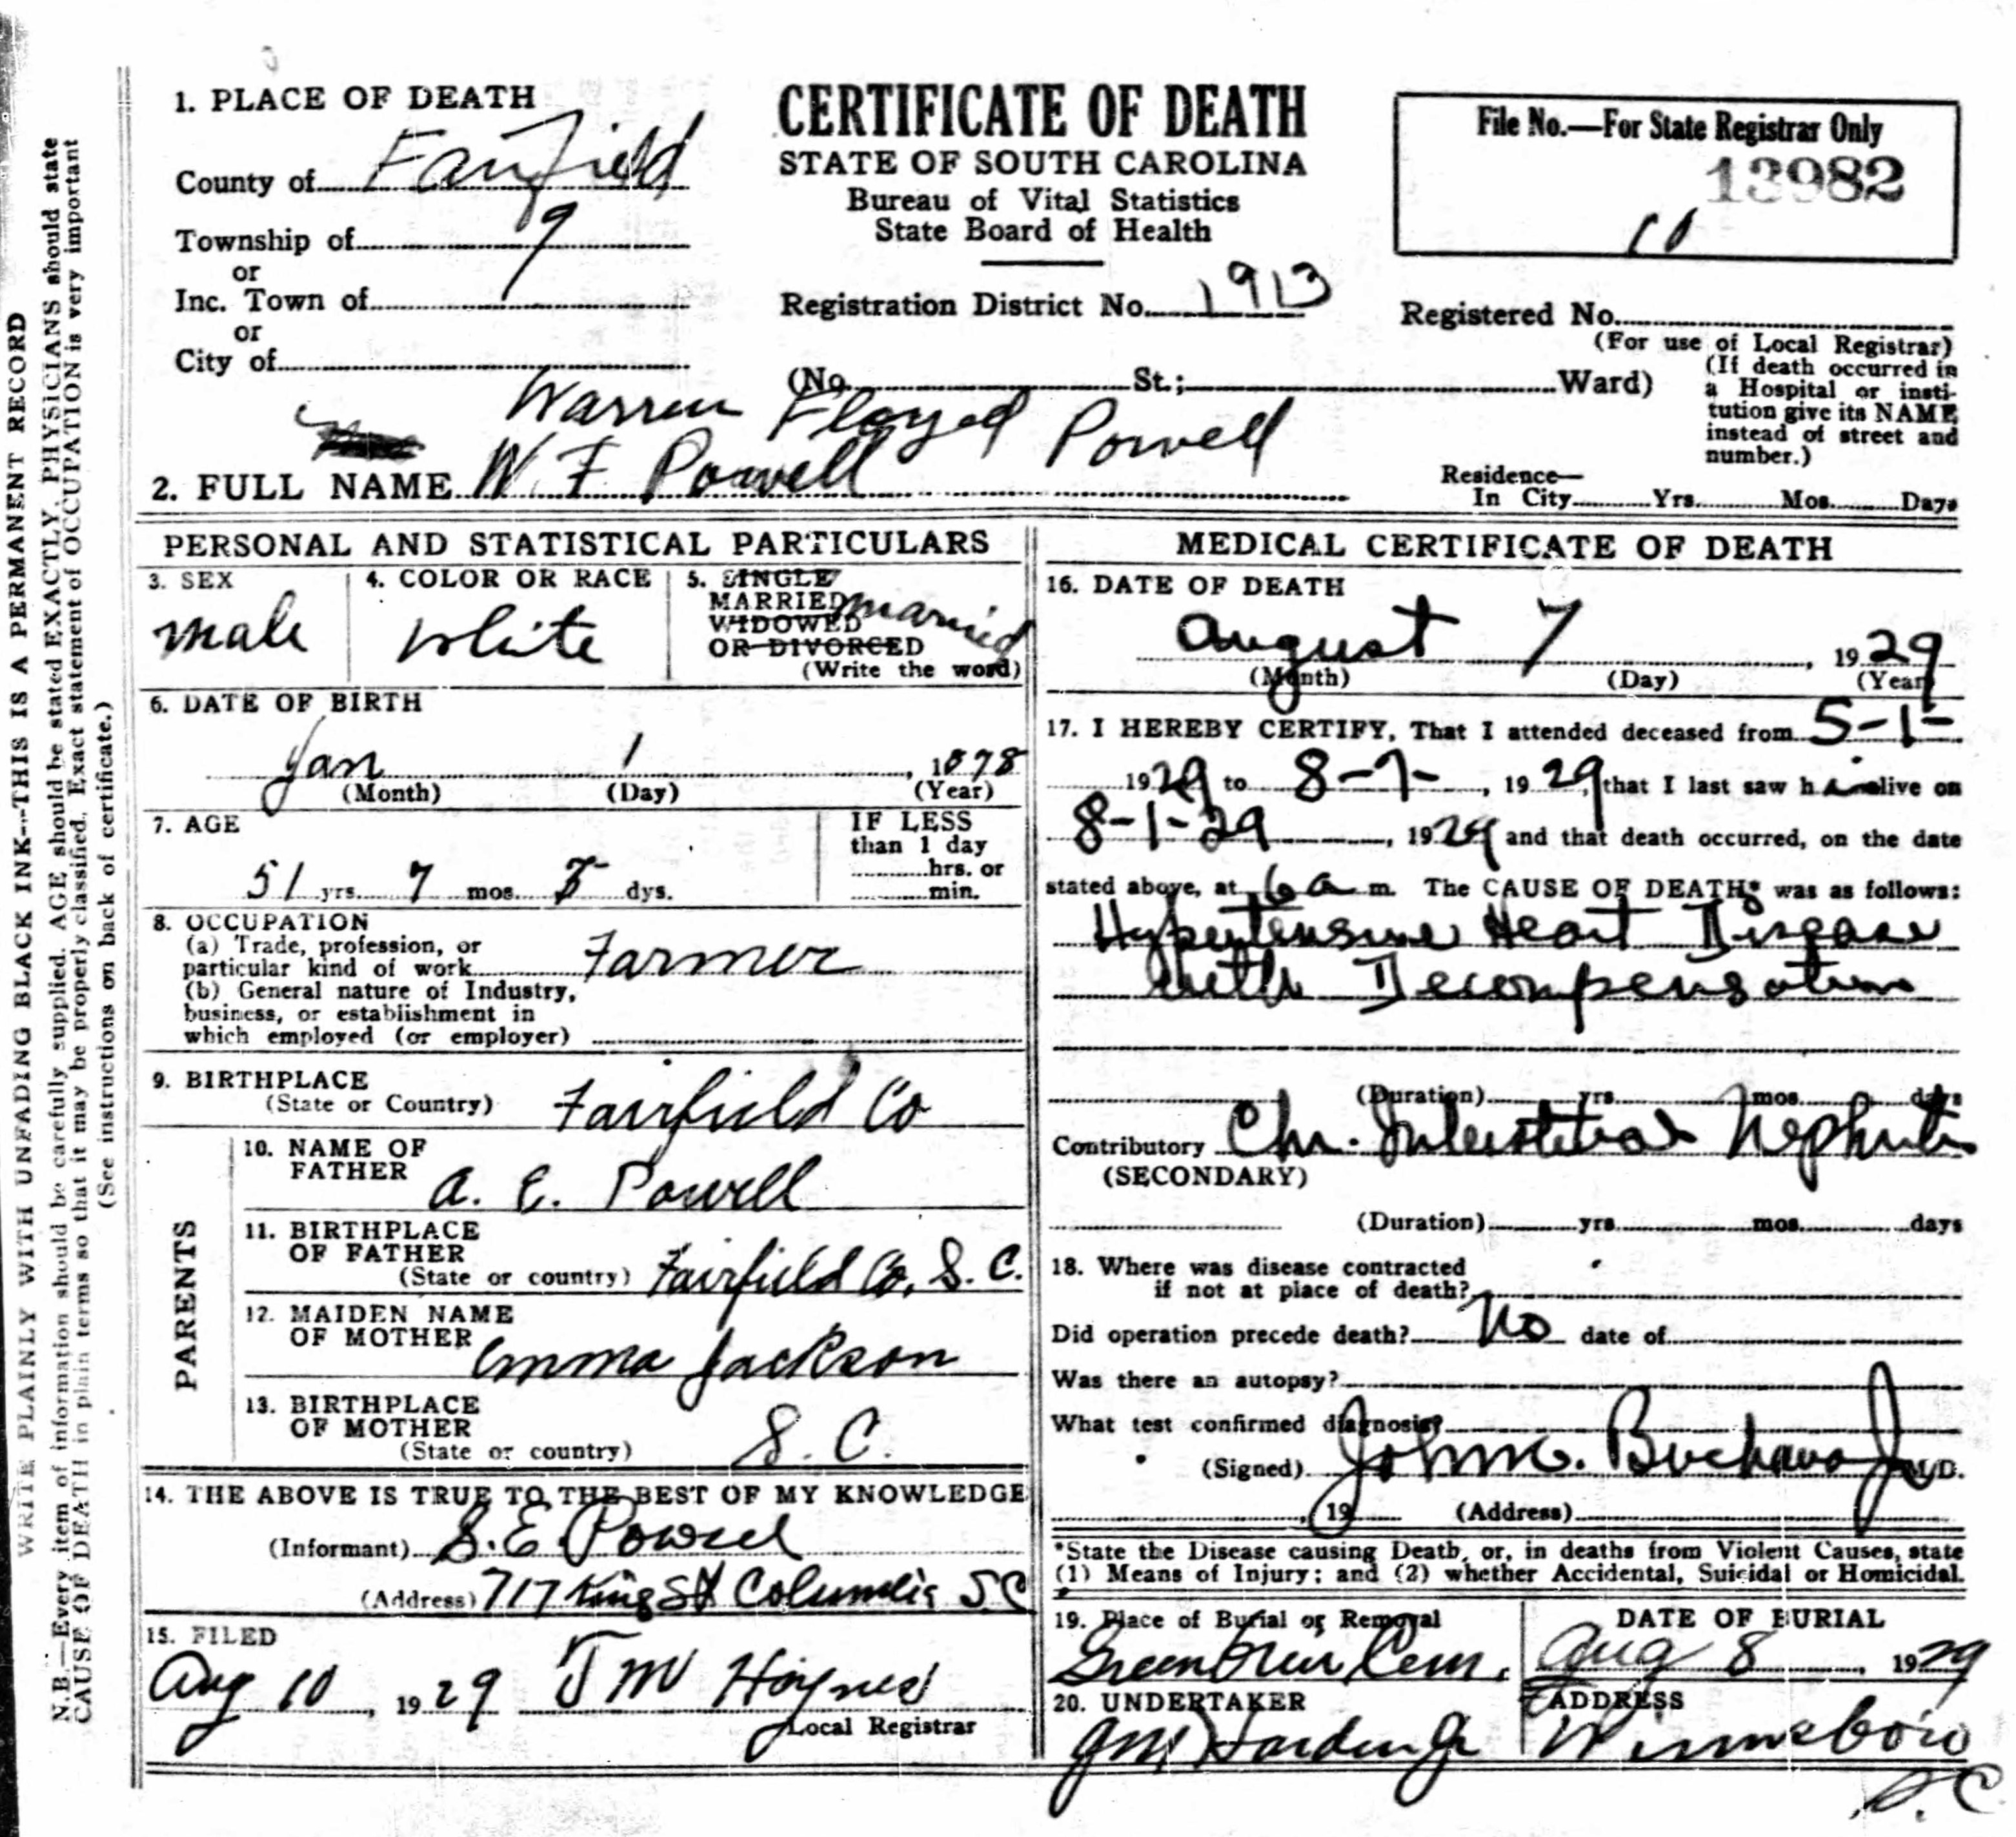 WRITE PLAINLY WITH UNFADING BLACK INK---THIS IS A PERMANENT RECORD
N.B.—Every item of information should be carefully supplied. AGE should be stated EXACTLY. PHYSICIANS should state
CAUSE OF DEATH in plain terms so that it may be properly classified. Exact statement of OCCUPATION is very important
(See instructions on back of certificate.)
1. PLACE OF DEATH
County of Fairfield
Township of 9
or
Inc. Town of
or
City of
CERTIFICATE OF DEATH
STATE OF SOUTH CAROLINA
Bureau of Vital Statistics
State Board of Health
Registration District No. 1913
File No.—For State Registrar Only
13982
10
Registered No.
(For use of Local Registrar)
(No. St.; Ward)
(If death occurred in
a Hospital or insti-
tution give its NAME
instead of street and
number.)
Warren Floyd Powell
2. FULL NAME W. F. Powell
Residence—
In City Yrs. Mos. Days
PERSONAL AND STATISTICAL PARTICULARS
3. SEX
male
4. COLOR OR RACE
White
5. SINGLE
MARRIED married
WIDOWED
OR DIVORCED
(Write the word)
6. DATE OF BIRTH
Jan 1, 1878
(Month) (Day) (Year)
7. AGE
51 yrs. 7 mos. dys.
IF LESS
than 1 day
hrs. or
min.
8. OCCUPATION
(a) Trade, profession, or
particular kind of work Farmer
(b) General nature of Industry,
business, or establishment in
which employed (or employer)
9. BIRTHPLACE
(State or Country) Fairfield Co
PARENTS
10. NAME OF
FATHER A. E. Powell
11. BIRTHPLACE
OF FATHER
(State or country) Fairfield Co, S. C.
12. MAIDEN NAME
OF MOTHER Emma Jackson
13. BIRTHPLACE
OF MOTHER
(State or country) S. C.
14. THE ABOVE IS TRUE TO THE BEST OF MY KNOWLEDGE
(Informant) S. E Powell
(Address) 717 King St Columbia S C
15. FILED
Aug 10, 1929 J M Haynes
Local Registrar
MEDICAL CERTIFICATE OF DEATH
16. DATE OF DEATH
August 7, 1929
(Month) (Day) (Year)
17. I HEREBY CERTIFY, That I attended deceased from 5-1-
1929 to 8-7-, 1929, that I last saw him alive on
8-1-29, 1929 and that death occurred, on the date
stated above, at 6 a m. The CAUSE OF DEATH* was as follows:
Hypertensive Heart Disease
with Decompensation
(Duration) yrs. mos. days
Contributory Chr. Interstitial Nephritis
(SECONDARY)
(Duration) yrs. mos. days
18. Where was disease contracted
if not at place of death?
Did operation precede death? No date of
Was there an autopsy?
What test confirmed diagnosis?
(Signed) John C. Buchanan Jr M.D.
19 (Address)
*State the Disease causing Death, or, in deaths from Violent Causes, state
(1) Means of Injury; and (2) whether Accidental, Suicidal or Homicidal.
19. Place of Burial or Removal
Greenbrier Cem.
DATE OF BURIAL
Aug 8, 1929
20. UNDERTAKER
J M Harden Jr
ADDRESS
Winnsboro
S. C.